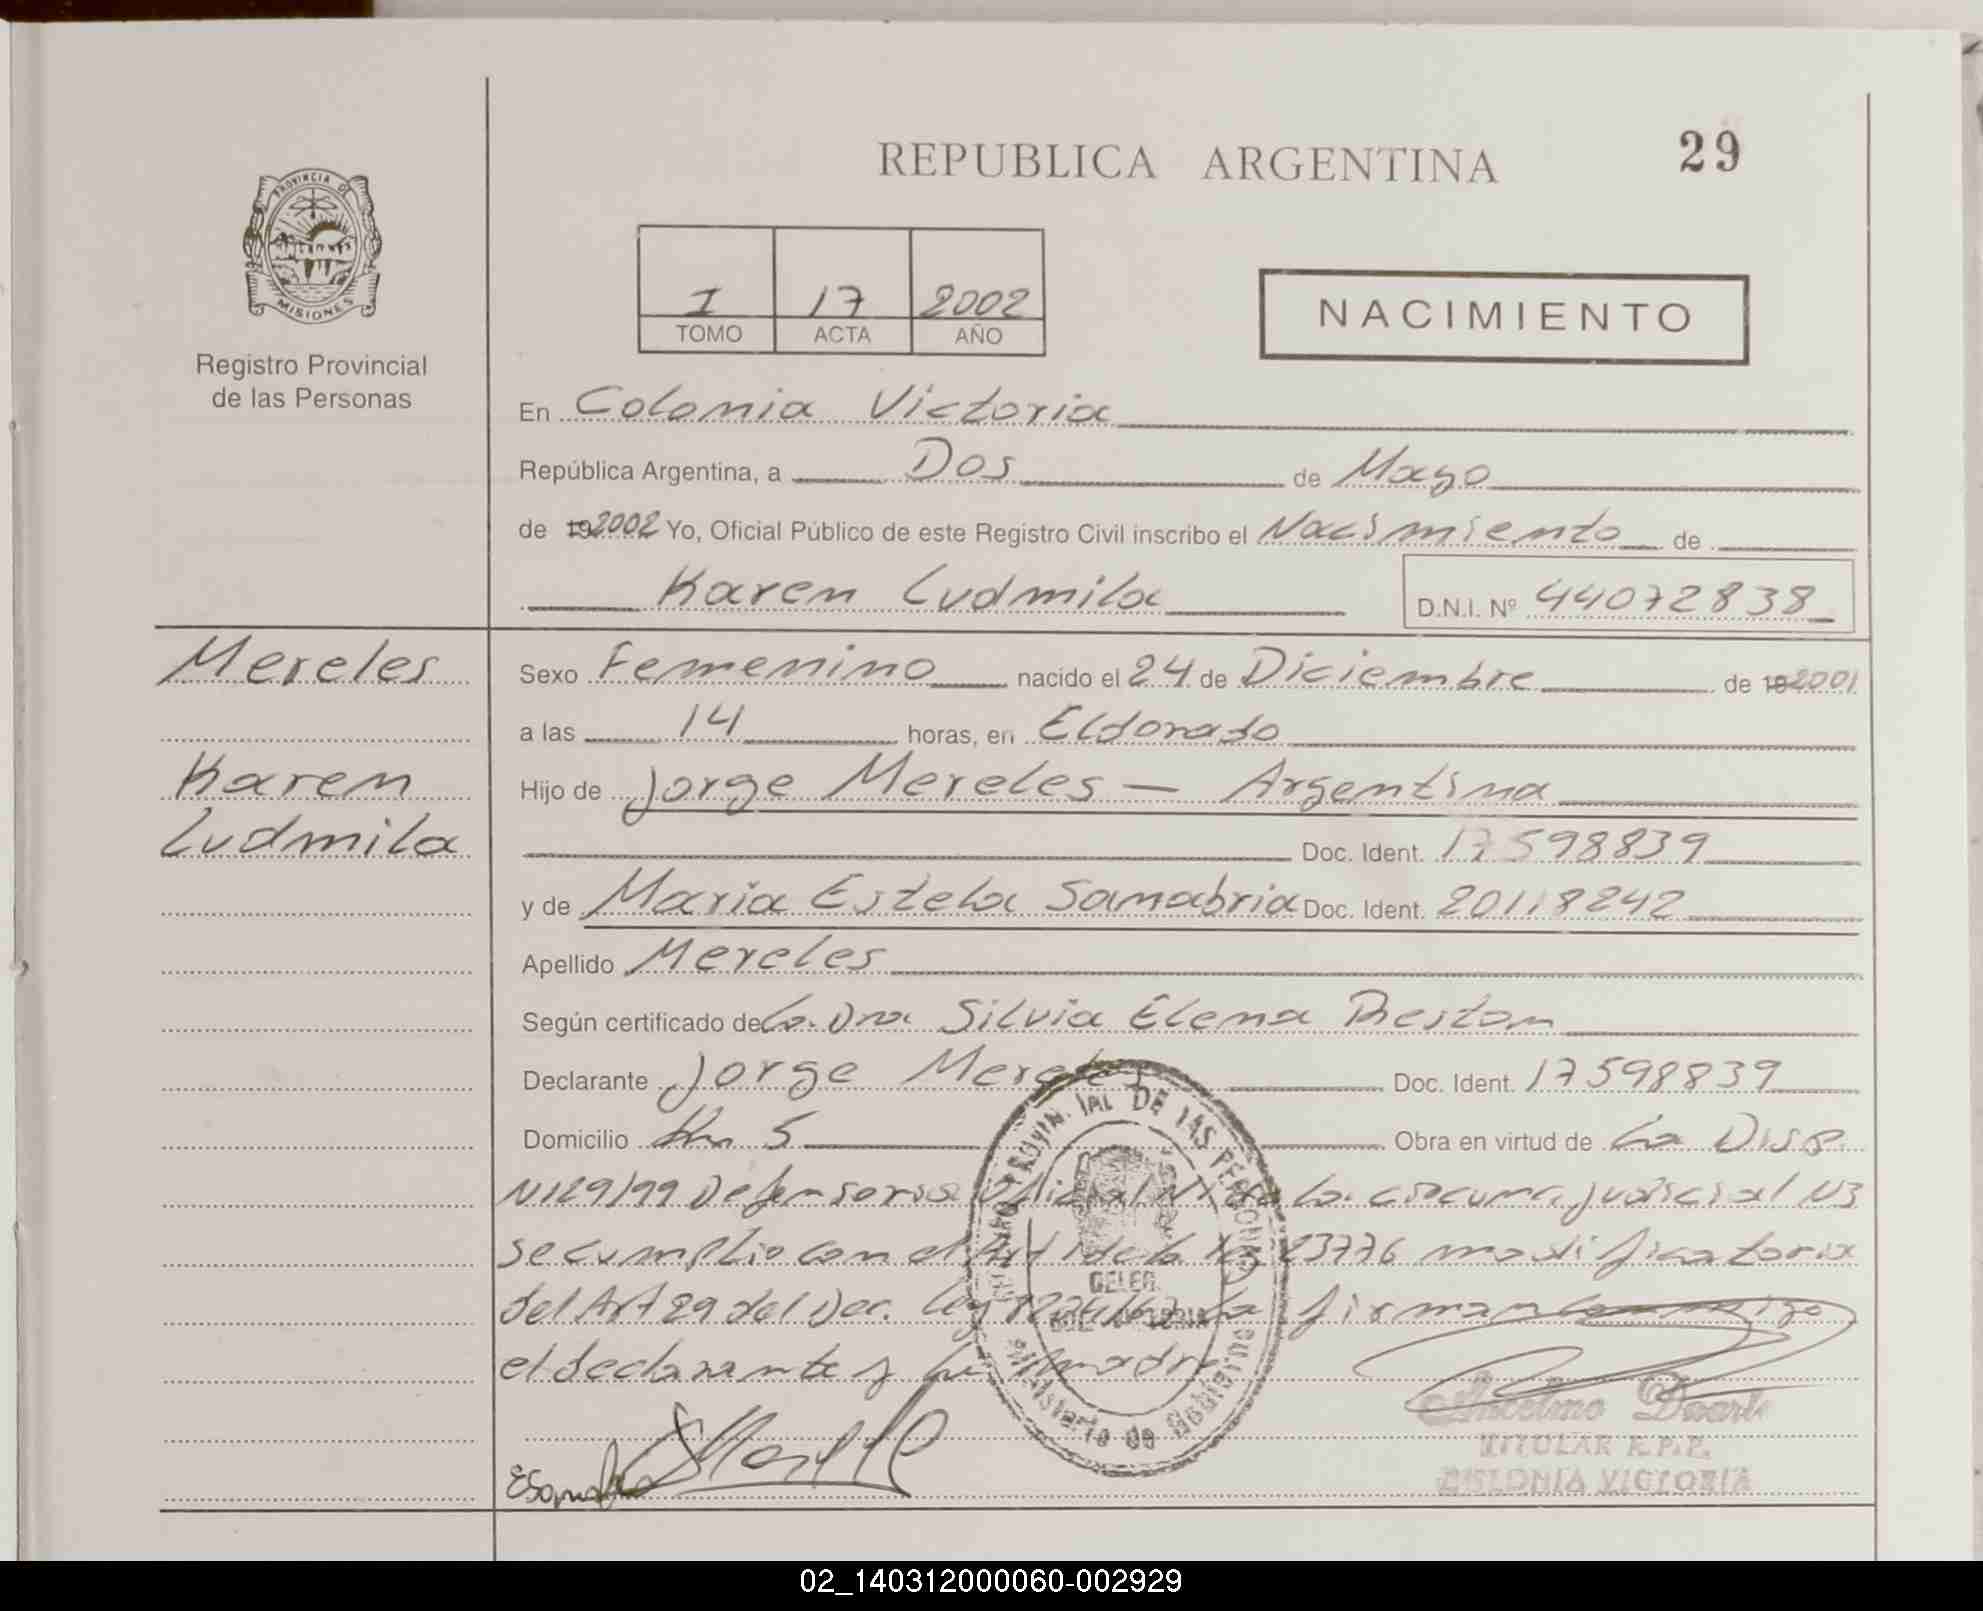 REPUBLICA ARGENTINA
29
PROVINCIA D
MISIONES
Registro Provincial
de las Personas
I 17 2002
TOMO ACTA AÑO
NACIMIENTO
En Colonia Victoria
República Argentina, a Dos de Mayo
de 19 2002 Yo, Oficial Público de este Registro Civil inscribo el Nacimiento de
Karen Ludmila D.N.I. Nº 44072838
Mereles
Karen
Ludmila
Sexo Femenino nacido el 24 de Diciembre de 19 2001
a las 14 horas, en Eldorado
Hijo de Jorge Mereles — Argentina
Doc. Ident. 17598839
y de Maria Estela Sanabria Doc. Ident. 20118242
Apellido Mereles
Según certificado de La Dra Silvia Elena Beston
Declarante Jorge Mereles Doc. Ident. 17598839
Domicilio Km 5 Obra en virtud de La Disp.
N129/99 Defensoria Oficial N1 de la circunc. judicial N3
se cumplio con el Art 1 de la Ley 23776 modificatoria
del Art 29 del Dec. Ley firman
el declarante y la madre
DE LAS PERSONAS
DELEG
Ministerio de Gobierno
Anselmo Duarte
TITULAR R.P.P.
COLONIA VICTORIA
02_140312000060-002929